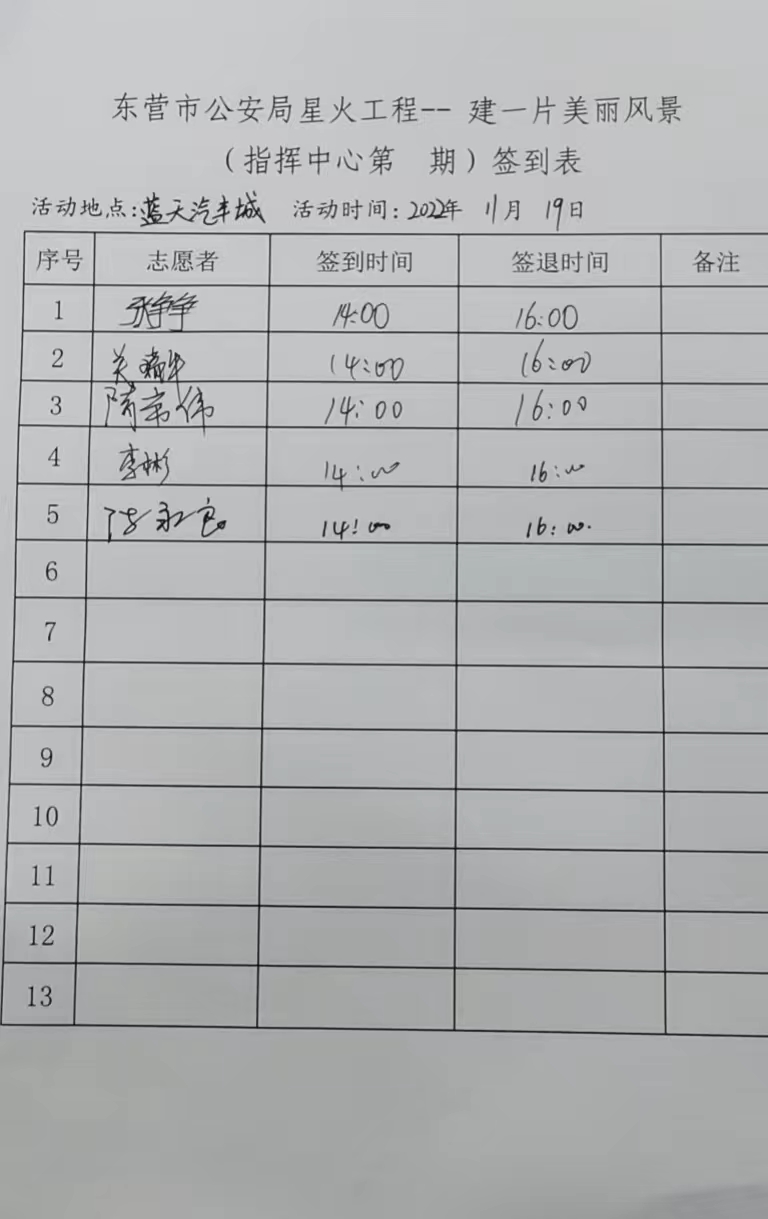 东营市公安局星火工程-- 建一片美丽风景
（指挥中心第 期）签到表
活动地点:蓝天汽车城 活动时间:2022年 11月 19日
序号 志愿者 签到时间 签退时间 备注
1 张争争 14:00 16:00
2 14:00 16:00
3 隋常伟 14:00 16:00
4 李彬 14:00 16:00
5 陈永良 14:00 16:00.
6
7
8
9
10
11
12
13